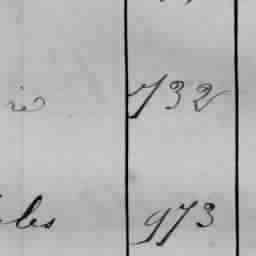 732
les 973